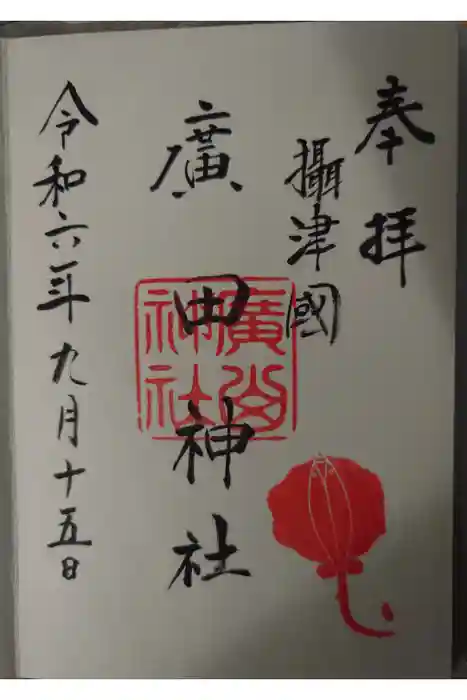 奉拝
攝津國
廣田神社
令和六年九月十五日
廣
神社